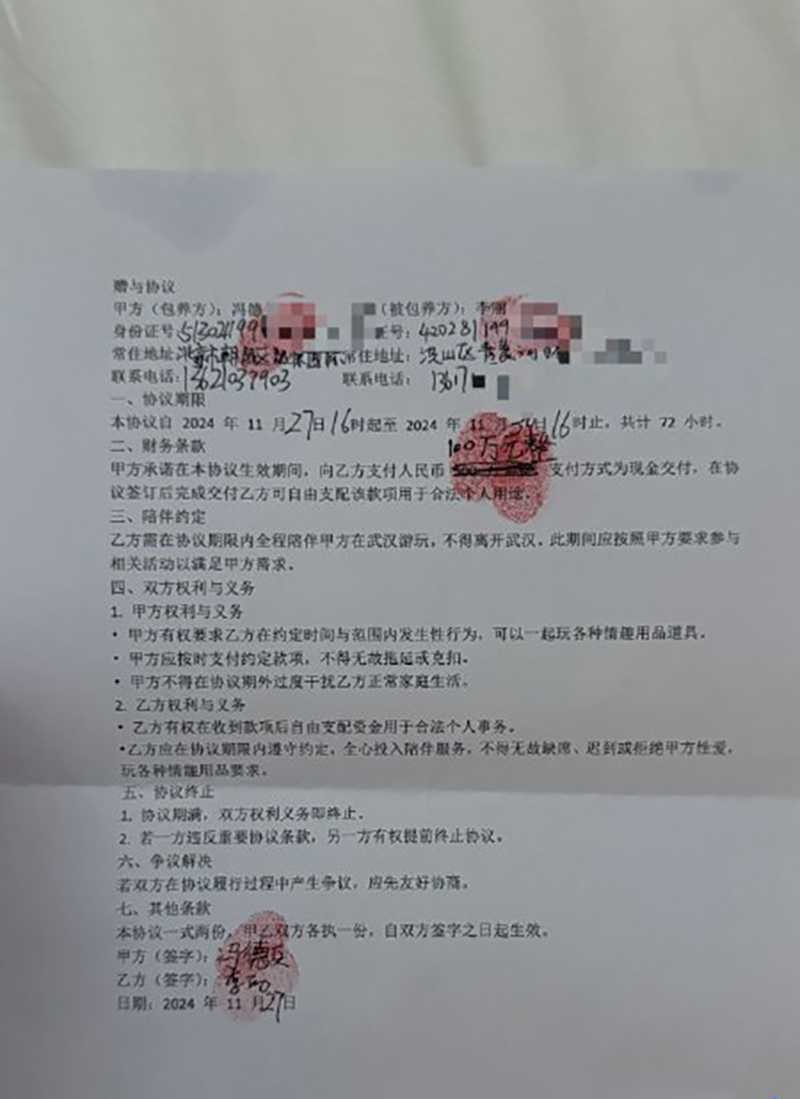 赠与协议
甲方（包养方）：冯德 （被包养方）：李
身份证号：51302199 证号：420281199
常住地址： 常住地址：
联系电话：13621039903 联系电话：13617
一、协议期限
本协议自 2024 年 11 月27日16时起至 2024 年 11 月 日16时止，共计 72 小时。
二、财务条款
100万元整
甲方承诺在本协议生效期间，向乙方支付人民币 支付方式为现金交付，在协
议签订后完成交付乙方可自由支配该款项用于合法个人用途。
三、陪伴约定
乙方需在协议期限内全程陪伴甲方在武汉游玩，不得离开武汉。此期间应按照甲方要求参与
相关活动以满足甲方需求。
四、双方权利与义务
1. 甲方权利与义务
• 甲方有权要求乙方在约定时间与范围内发生性行为，可以一起玩各种情趣用品道具。
• 甲方应按时支付约定款项，不得无故拖延或克扣。
• 甲方不得在协议期外过度干扰乙方正常家庭生活。
2. 乙方权利与义务
• 乙方有权在收到款项后自由支配资金用于合法个人事务。
•乙方应在协议期限内遵守约定，全心投入陪伴服务，不得无故缺席、迟到或拒绝甲方性爱，
玩各种情趣用品要求。
五、协议终止
1. 协议期满，双方权利义务即终止。
2. 若一方违反重要协议条款，另一方有权提前终止协议。
六、争议解决
若双方在协议履行过程中产生争议，应先友好协商。
七、其他条款
本协议一式两份，甲乙双方各执一份，自双方签字之日起生效。
甲方（签字）：冯德
乙方（签字）：李
日期：2024 年 11 月27日